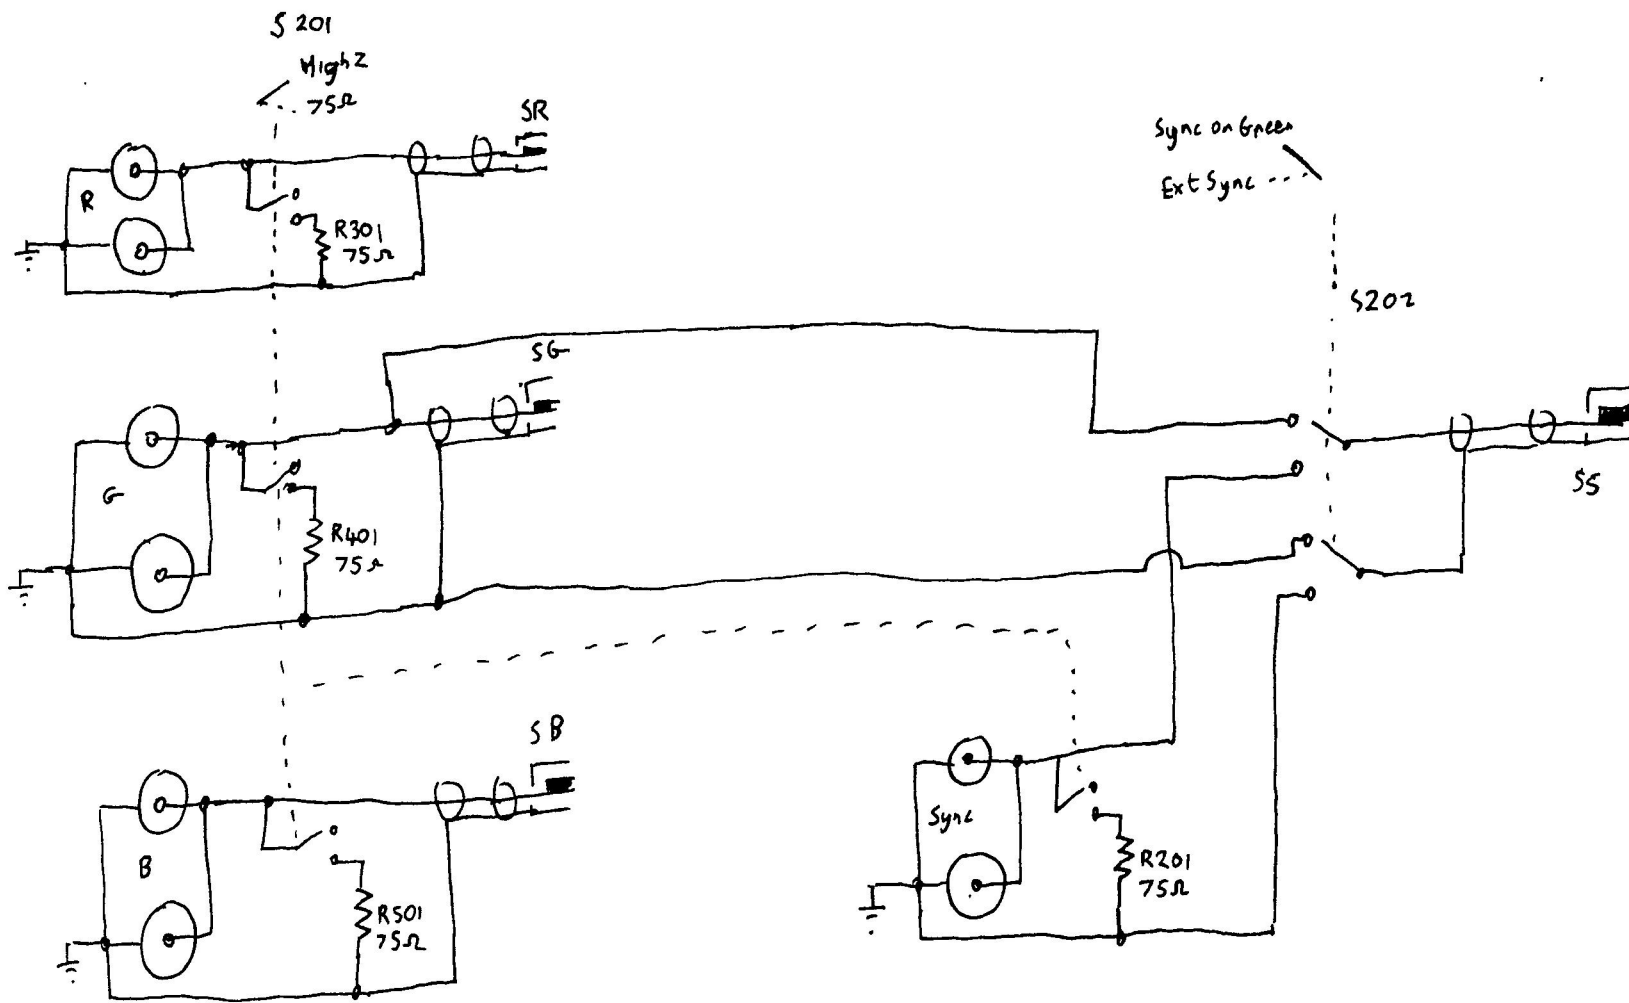 S 201
High Z
75Ω
SR
R
R301
75Ω
Sync on Green
Ext Sync
S202
SG
G
R401
75Ω
SS
SB
B
R501
75Ω
Sync
R201
75Ω